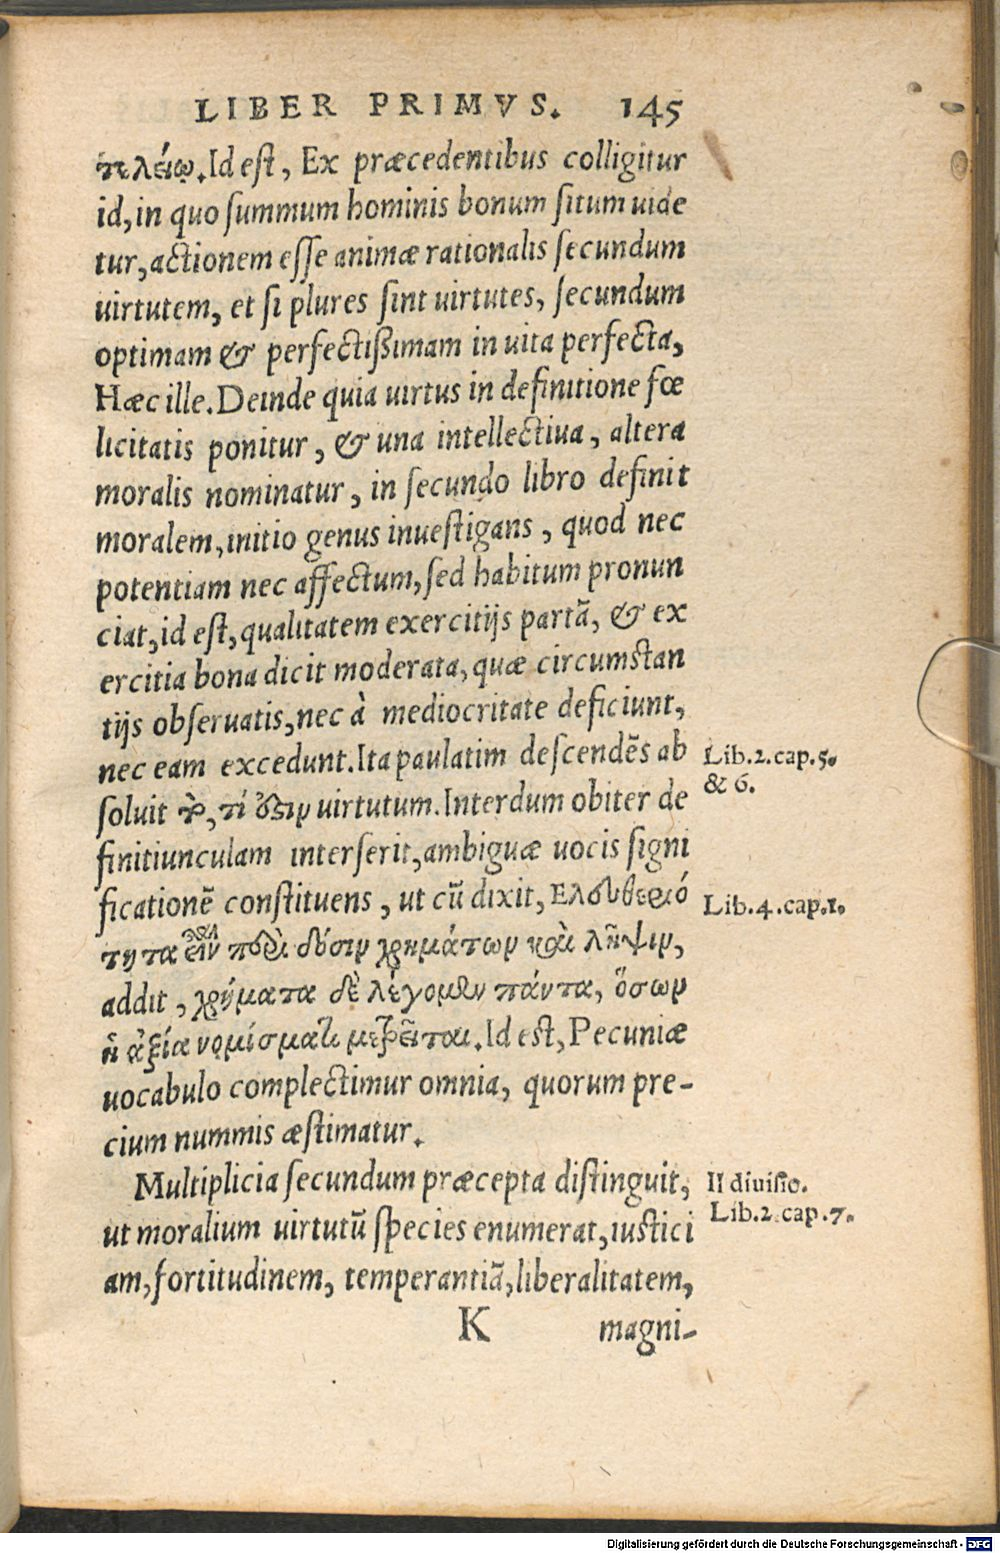 LIBER PRIMVS. 145
τελείῳ. Id est, Ex præcedentibus colligitur
id, in quo summum hominis bonum situm uide
tur, actionem esse animæ rationalis secundum
uirtutem, et si plures sint uirtutes, secundum
optimam & perfectißimam in uita perfecta,
Hæc ille. Deinde quia uirtus in definitione fœ
licitatis ponitur, & una intellectiua, altera
moralis nominatur, in secundo libro definit
moralem, initio genus inuestigans, quod nec
potentiam nec affectum, sed habitum pronun
ciat, id est, qualitatem exercitijs partã, & ex
ercitia bona dicit moderata, quæ circumstan
tijs obseruatis, nec à mediocritate deficiunt,
nec eam excedunt. Ita paulatim descendẽs ab
soluit τὸ, τί ὅξιν uirtutum. Interdum obiter de
finitiunculam interserit, ambiguæ uocis signi
ficationẽ constituens, ut cũ dixit, Ελευθεριό
τητα εἶναι περὶ δόσιν χρημάτων καὶ λῆψιν,
addit, χρήματα δὲ λέγομεν πάντα, ὅσων
ἡ ἀξία νομίσματι μετρεῖται. Id est, Pecuniæ
uocabulo complectimur omnia, quorum pre-
cium nummis æstimatur.
Multiplicia secundum præcepta distinguit,
ut moralium uirtutũ species enumerat, iustici
am, fortitudinem, temperantiã, liberalitatem,
K magni-
Lib. 2. cap. 5.
& 6.
Lib. 4. cap. 1.
II diuisio.
Lib. 2. cap. 7.
Digitalisierung gefördert durch die Deutsche Forschungsgemeinschaft - DFG